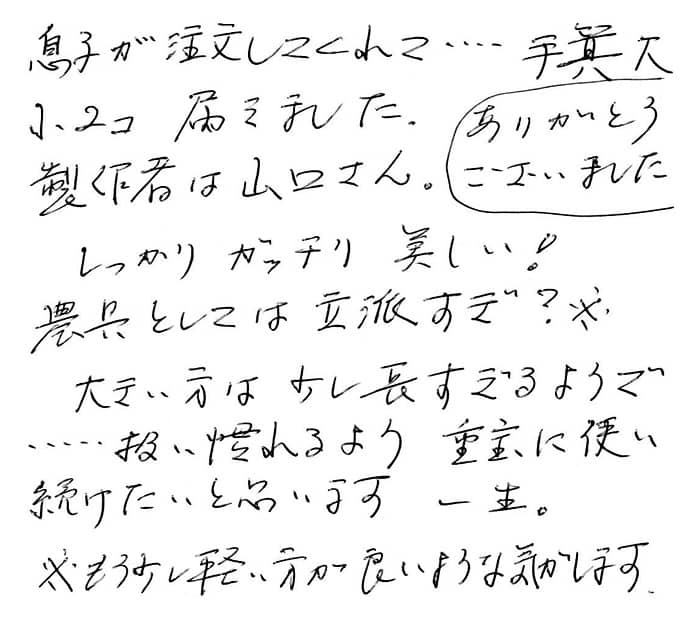 息子が注文してくれて‥‥ 手箕大
小2コ 届きました。
ありがとう
ございました
製作者は山口さん。
しっかり ガッチリ 美しい!
農具としては立派すぎ?※
大きい方は少し長すぎるようで
‥‥‥扱い慣れるよう 重宝に使い
続けたいと思います 一生。
※もう少し軽い方が良いような気がします。